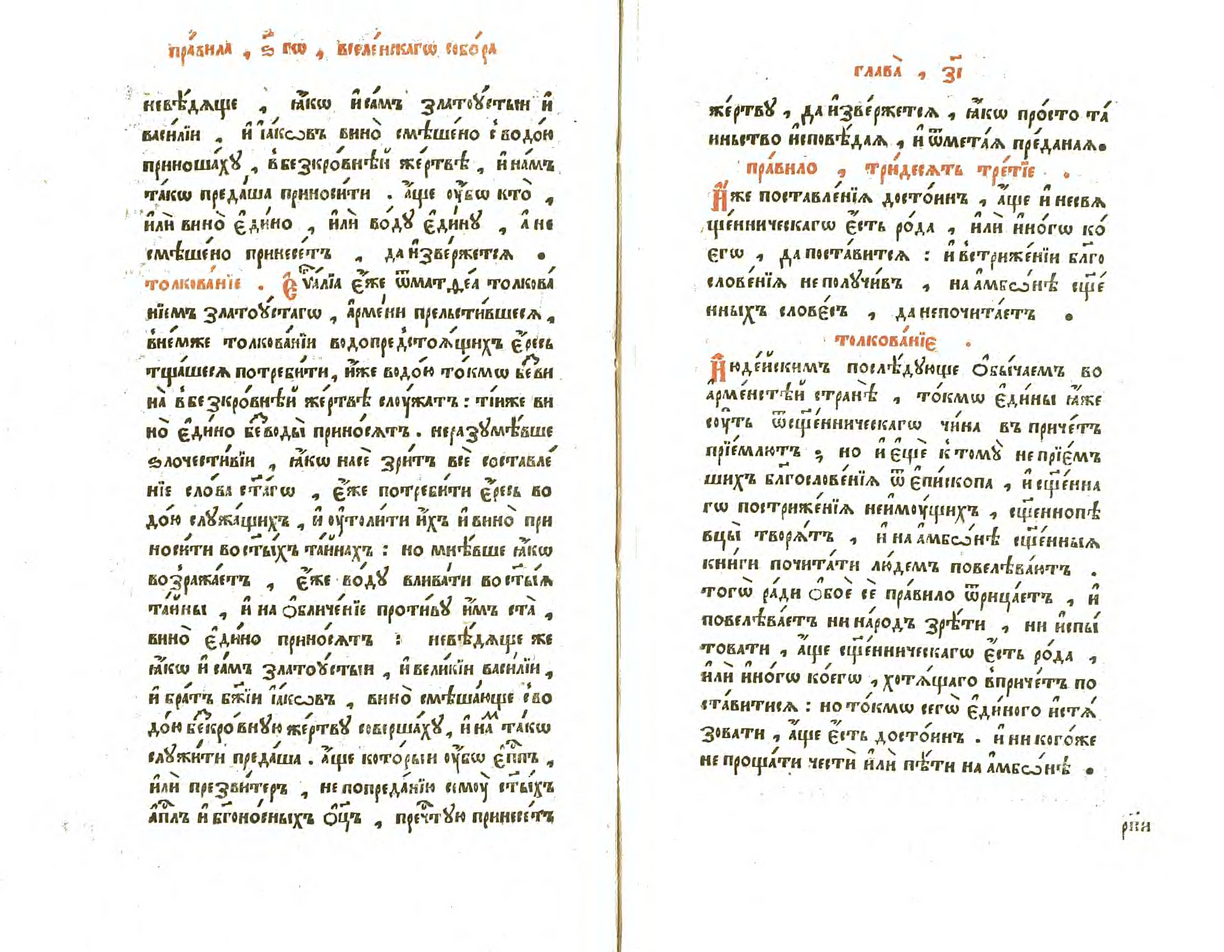 пра́вила , ѕ҃ гѡ , вселе́нскагѡ собо́ра
невѣ́дяще , ꙗ҆́кѡ и҆са́мъ златоу́стыи и҆
васи́лїи , и҆ і҆а́кѡвъ вино̀ смѣ́шено сводо́ю
приноша́хꙋ , вбезкро́внѣй же́ртвѣ , и҆на́мъ
та́кѡ преда́ша приноси́ти . а҆́ще оу҆́бѡ кто̀ ,
и҆лѝ вино̀ є҆ди́но , и҆лѝ во́дꙋ є҆ди́нꙋ , а҆ не
смѣ́шено принесе́тъ , да и҆зве́ржется .
толкова́нїе . Є҆ѵа́лїа є҆́же ѿмат.ѳеа толкова́
нїемъ златоу́стагѡ , а҆рме́ни прельсти́вшеся ,
вне́мже толкова́нїи водопредстоѧ́щихъ є҆́ресь
тща́шеся потреби́ти , и҆́же водо́ю то́кмѡ беⷥви
на̀ вбезкро́внѣй же́ртвѣ слоу́жатъ : ті́иже ви
но̀ є҆ди́но беⷥводы̀ прино́сятъ . неразꙋмѣ́вше
ѕлочести́вїи , ꙗ҆́кѡ насѐ зри́тъ всѐ составле́
нїе сло́ва ст҃а́гѡ , є҆́же потреби́ти є҆́ресь во
до́ю слꙋ́жащихъ , и҆ оу҆толи́ти и҆́хъ и҆вино̀ при
носи́ти вост҃ы́хъ та́йнахъ : но мнѣ́вше ꙗ҆́кѡ
возража́етъ , є҆́же во́дꙋ влива́ти вост҃ы́ѧ
та́йны , и҆ на ѡ҆бличе́нїе проти́вꙋ и҆̀мъ ста̀ ,
вино̀ є҆ди́но прино́сятъ : невѣ́дяще же
ꙗ҆́кѡ и҆ са́мъ златоу́стыи , и҆вели́кїи васи́лїи ,
и҆ бра́тъ бж҃їи і҆а́кѡвъ , вино̀ смѣша́юще сво
до́ю беⷥкро́внꙋю же́ртвꙋ соверша́хꙋ , и҆ наⷨ та́кѡ
слꙋжи́ти преда́ша . а҆́ще кото́рыи оу҆́бѡ є҆пⷭ҇пъ ,
и҆лѝ презви́теръ , не попреда́нїю семоу̀ ст҃ы́хъ
а҆пⷭ҇лъ и҆ бг҃оно́сныхъ ѻ҆ц҃ъ , преч҃тꙋю принесе́тъ
глава̀ , з҃і
же́ртвꙋ , да и҆зве́ржется , ꙗ҆́кѡ про́сто та́
иньство и҆сповѣ́дая , и҆ ѿмета́я пре́даная.
пра́вило , три́десять тре́тїе .
И҆́же поставле́нїѧ досто́инъ , а҆́ще и҆ несвѧ
ще́нническагѡ є҆́сть ро́да , и҆лѝ и҆но́гѡ ко́
єгѡ , да поста́вится : и҆ встриже́нїи бл҃го
слове́нїѧ не полꙋчи́въ , на а҆мбѡ́нѣ сщ҃е́
нныхъ слове́съ , да непочита́етъ .
толкова́нїе .
И҆юде́йскимъ послѣ́дꙋюще ѻ҆бы́чаемъ во
а҆рме́нстѣй странѣ̀ , то́кмѡ є҆ди́ны ꙗ҆́же
соу́ть ѿсщ҃е́нническагѡ чи́на въ приче́тъ
прїе́млютъ ; но и҆ є҆щѐ к томꙋ̀ не прїе́мъ
шихъ бл҃гослове́нїѧ ѿ є҆пи́скопа , и҆ сщ҃е́нна
гѡ постриже́нїѧ неимоу́щихъ , сщ҃еннопѣ
вцы̀ творѧ́тъ , и҆ на а҆мбѡ́нѣ сщ҃е́нныѧ
кни́ги почита́ти лю́демъ повелѣва́ютъ .
тогѡ̀ ра́ди ѻ҆бо́е сѐ пра́вило ѿрица́етъ , и҆
повелѣва́етъ ни наро́дъ зрѣ́ти , ни и҆спы́
товати , а҆́ще сщ҃е́нническагѡ є҆́сть ро́да ,
и҆лѝ и҆но́гѡ ко́егѡ , хотѧ́щаго вприче́тъ по
ста́витися : но то́кмѡ сегѡ̀ є҆ди́ного и҆стѧ
зова́ти , а҆́ще є҆́сть досто́инъ . и҆ ни кого́же
не проща́ти че́сти и҆лѝ пѣ́ти на а҆мбѡ́нѣ .
рн҃и